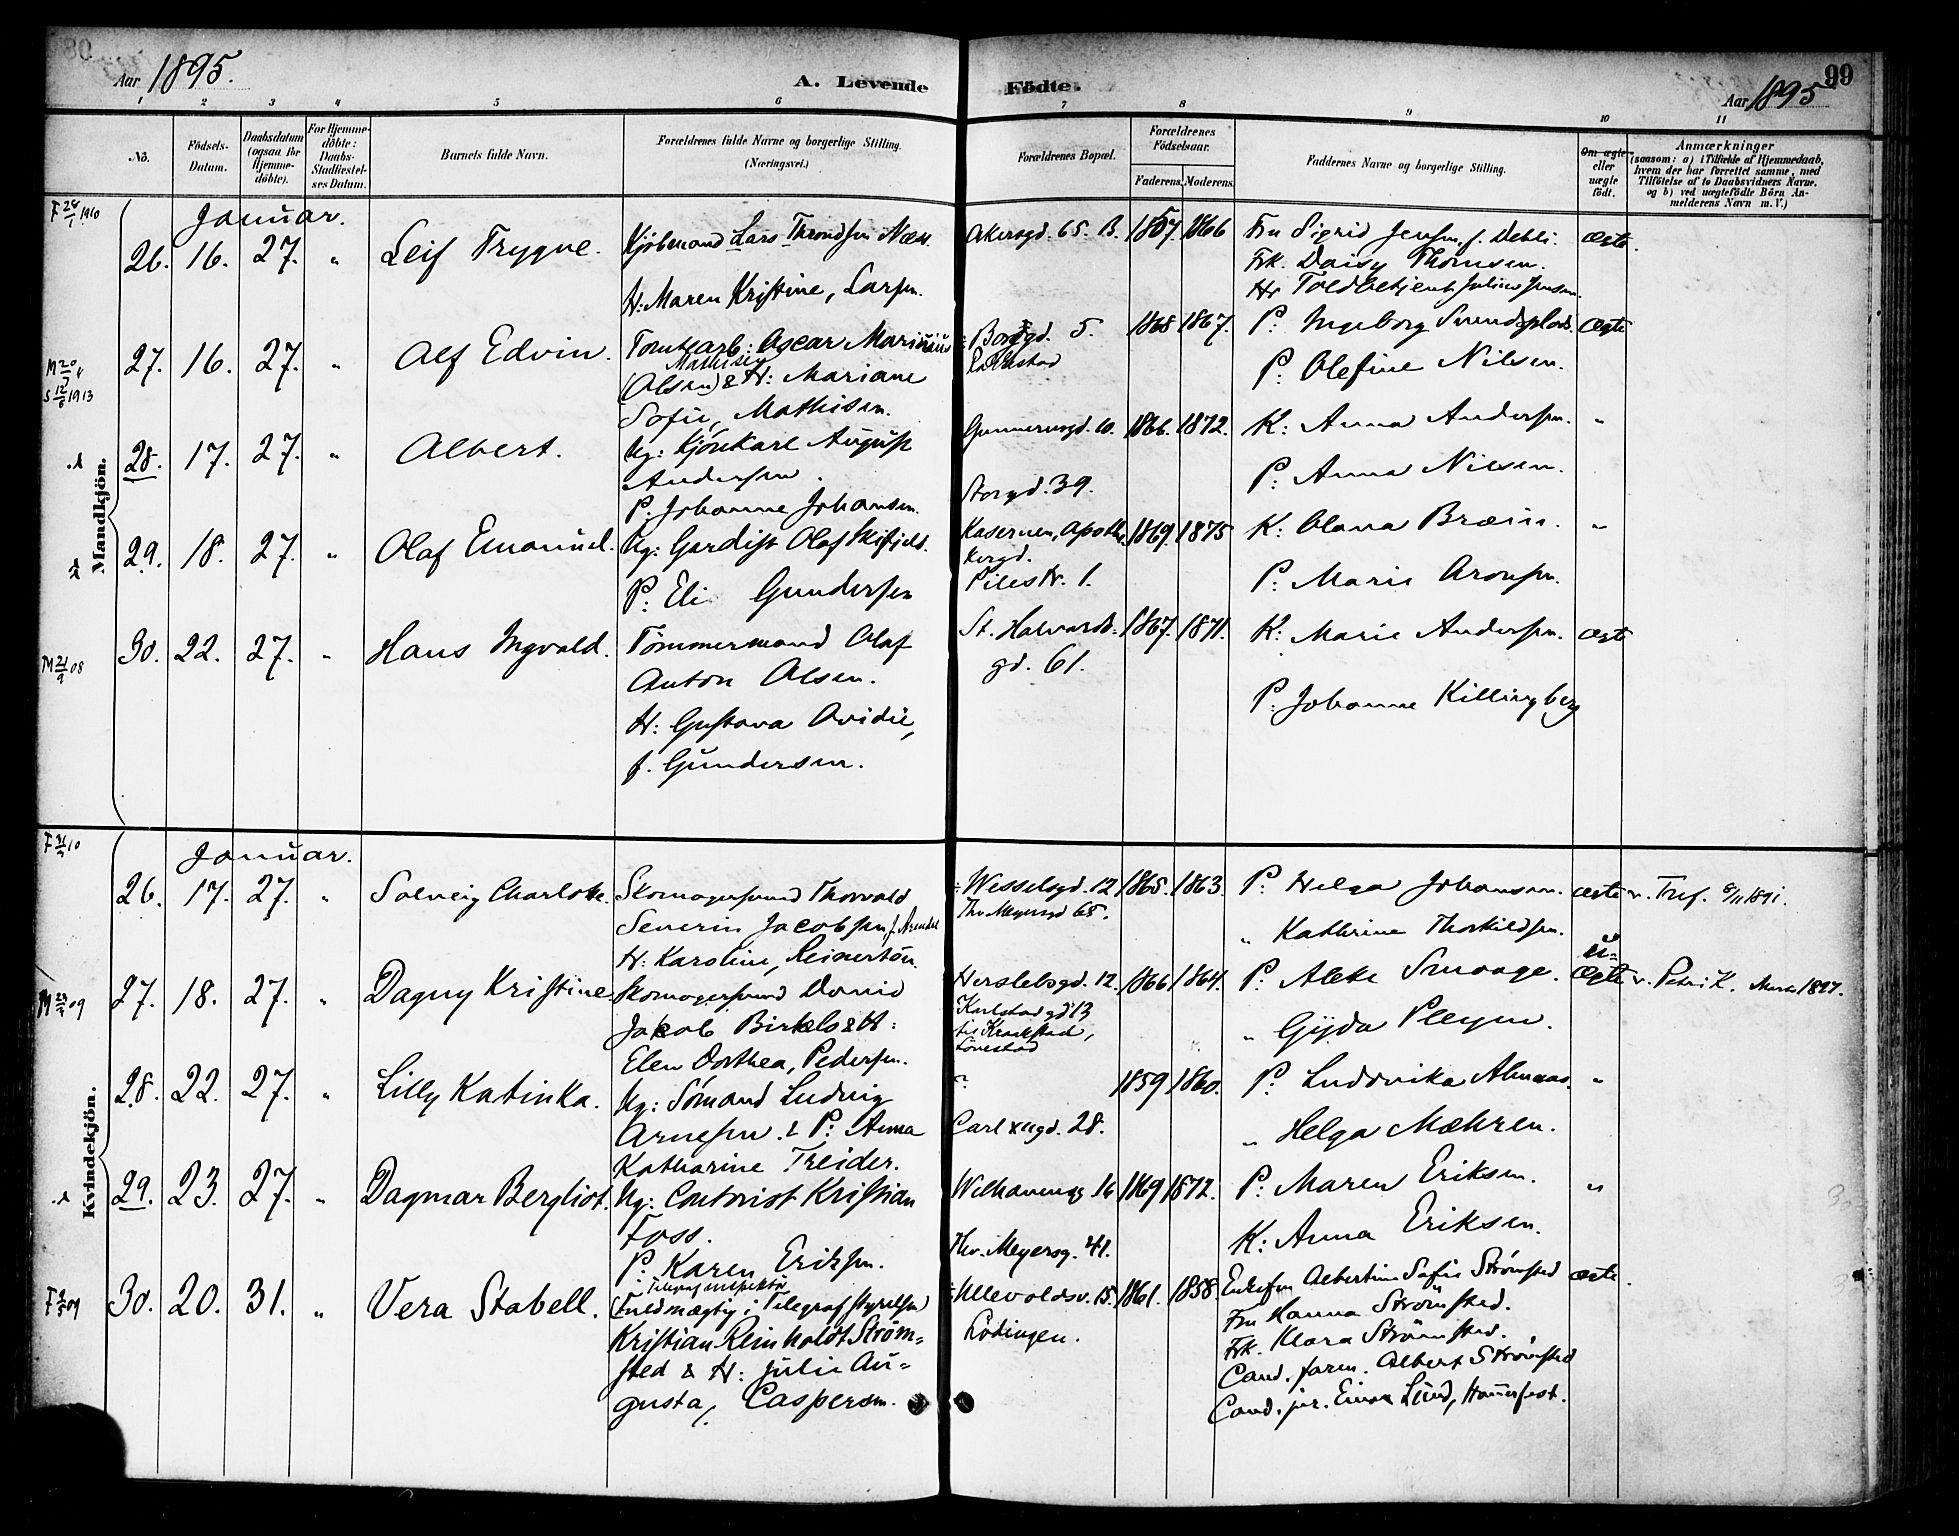 Aar 1895.
A. Levende Födte.
Aar 1895
99
1 2 3 4 5 6 7 8 9 10 11
No.
Födsels-Datum.
Daabsdatum (ogsaa for Hjemme-döbte).
For Hjemme-döbte: Daabs-Stadfæstel-ses Datum.
Barnets fulde Navn.
Forældrenes fulde Navne og borgerlige Stilling.
(Næringsvei.)
Forældrenes Bopæl.
Forældrenes Födselsaar.
Faderens. Moderens.
Faddernes Navne og borgerlige Stilling.
Om ægte eller uægte födt.
Anmærkninger
(saasom: a) i Tilfælde af Hjemmedaab, hvem der har forrettet samme, med Tilföielse af to Daabsvidners Navne, og b) ved uægtefödte Börn Anmelderens Navn m. V.)
Mandkjön.
Januar.
26. 16. 27. " Leif Trygve. Kjøbmand Lars Throndsen Næss
H: Maren Kristine, Larsen.
Akersgd. 65. B. 1857. 1866
Fru Sigrid Jensen, f. Dehli.
Frk. Daisy Thomsen.
Hr Toldbetjent Julius Jensen.
ægte.
27. 16. 27. " Alf Edvin. Tomtearb: Oscar Marinius
Mathisen
(Olsen) & H: Mariane
Sofie, Mathisen.
Borggd. 5.
1868 1867.
P: Ingeborg Svendsplads.
P: Olefine Nilsen.
ægte
28. 17. 27. " Albert. Ug: Kjørekarl August
Andersen.
P. Johanne Johansen.
Gunnerusgd. 10.
Storgd. 39.
1866. 1872.
K: Anna Andersen.
P: Anna Nilsen.
"
29. 18. 27. " Olaf Emanuel. Ug: Gardist Olaf Skifjeld.
P: Eli Gundersen
Kasernen, Apothe-
kergd.
Pilestr. 1.
1869. 1875
K: Olava Bræin.
P: Marie Aronsen.
"
30. 22. 27. " Hans Ingvald. Tømmermand Olaf
Anton Olsen.
H: Gustava Ovidie,
f. Gundersen.
St. Halvards-
gd. 61.
1867. 1871.
K: Marie Andersen.
P: Johanne Killingberg
ægte
Kvindekjön.
Januar.
26. 17. 27. " Solveig Charlotte. Skomagersvend Thorvald
Severin Jacobsen f. Arendal
H: Karoline, Reinertsen.
Wesselsgd. 12
Thv. Meyersgd 68.
1865. 1863.
P: Helga Johansen.
" Kathrine Thorkildsen.
ægte v. Tref. 8/11 1891.
27. 18. 27. " Dagny Kristine. Skomagersvend David
Jakob Birkelo & H:
Elen Dorthea, Pedersen.
Herslebsgd. 12.
Karlstad gd 13
1866 1864.
P: Alette Smaage.
" Gyda Pleym.
u-
ægte v. Petri K. Marts 1897.
28. 22. 27. " Lilly Katinka. Ug: Sømand Ludvig
Arnesen. & P: Anna
Katharine Treider.
?
Carl XIIgd. 28.
1859 1860.
P: Ludovika Almaas.
" Helga Mæhren.
"
29. 23. 27. " Dagmar Bergliot. Ug: Contorist Kristian
Foss.
P: Karen Eriksen.
Welhavensg 16
Thv. Meyersg. 41.
1869 1872.
P: Maren Eriksen.
K: Anna Eriksen.
"
30. 20. 31. " Vera Stabell. Telegrafinspektør
(Fuldmægtig i Telegrafstyrelsen)
Kristian Reinholdt Strøm-
sted & H: Julie Au-
gusta, Caspersen.
Ullevoldsv. 15.
Lødingen.
1861. 1858.
Enkefru Albertine Sofie Strømsted
Fru Hanna Strømsted.
Frk. Klara Strømsted.
Cand. farm. Albert Strømsted
Cand. jur. Einar Lund, Hammerfest.
ægte.